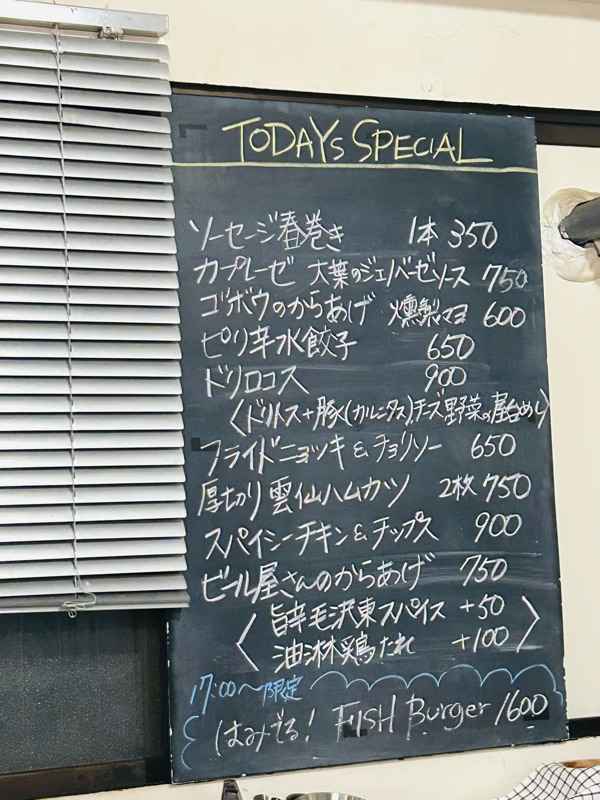 TODAYs SPECIAL
ソーセージ春巻き 1本 350
カプレーゼ 大葉のジェノバーゼソース 750
ゴボウのからあげ 燻製マヨ 600
ピリ辛水餃子 650
ドリロコス 900
〈ドリトス+豚(カルニタス),チーズ野菜の屋台めし〉
フライドニョッキ & チョリソー 650
厚切り雲仙ハムカツ 2枚 750
スパイシーチキン & チップス 900
ビール屋さんのからあげ 750
〈旨辛毛沢東スパイス +50
油淋鶏たれ +100〉
17:00〜限定
はみでる! FISH Burger 1600